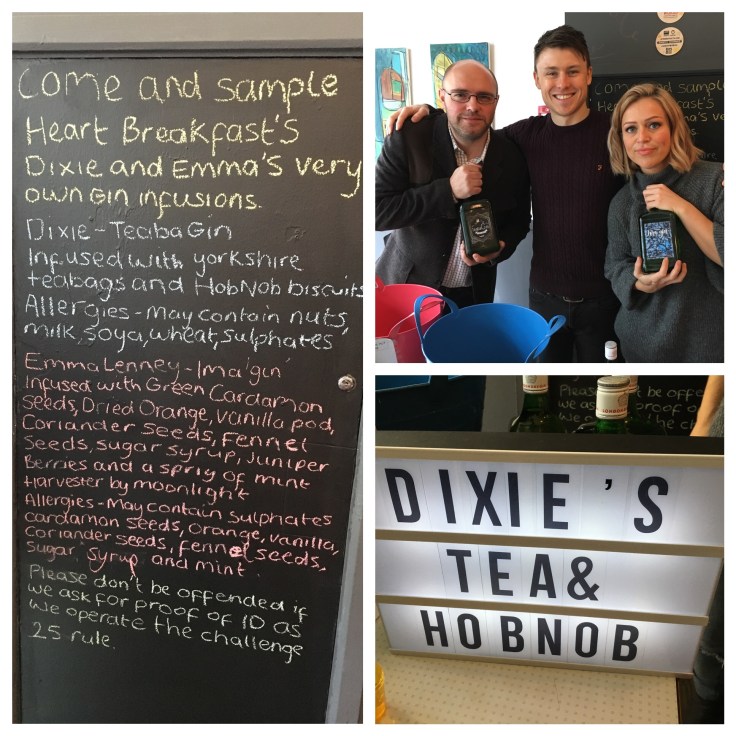 COME and sample
Heart Breakfast's
Dixie and Emma's very
own Gin infusions.
Dixie - TeabaGin
Infused with yorkshire
teabags and HobNob biscuits
Allergies - May contain nuts,
milk, soya, wheat, sulphates
Emma Lenney - Ima'gin'
Infused with Green Cardamon
seeds, Dried Orange, vanilla pod,
Coriander seeds, fennel
seeds, sugar syrup, Juniper
Berries and a sprig of mint
Harvester by moonlight
Allergies - May contain sulphates
cardamon seeds, orange, vanilla,
Coriander seeds, fennel seeds,
sugar syrup and mint.
Please don't be offended if
we ask for proof of ID as
we operate the challenge
25 rule.
Come and sample
Heart Breakfast's
DIXIE'S
TEA&
HOBNOB
Please don't be offended
we ask for proof of